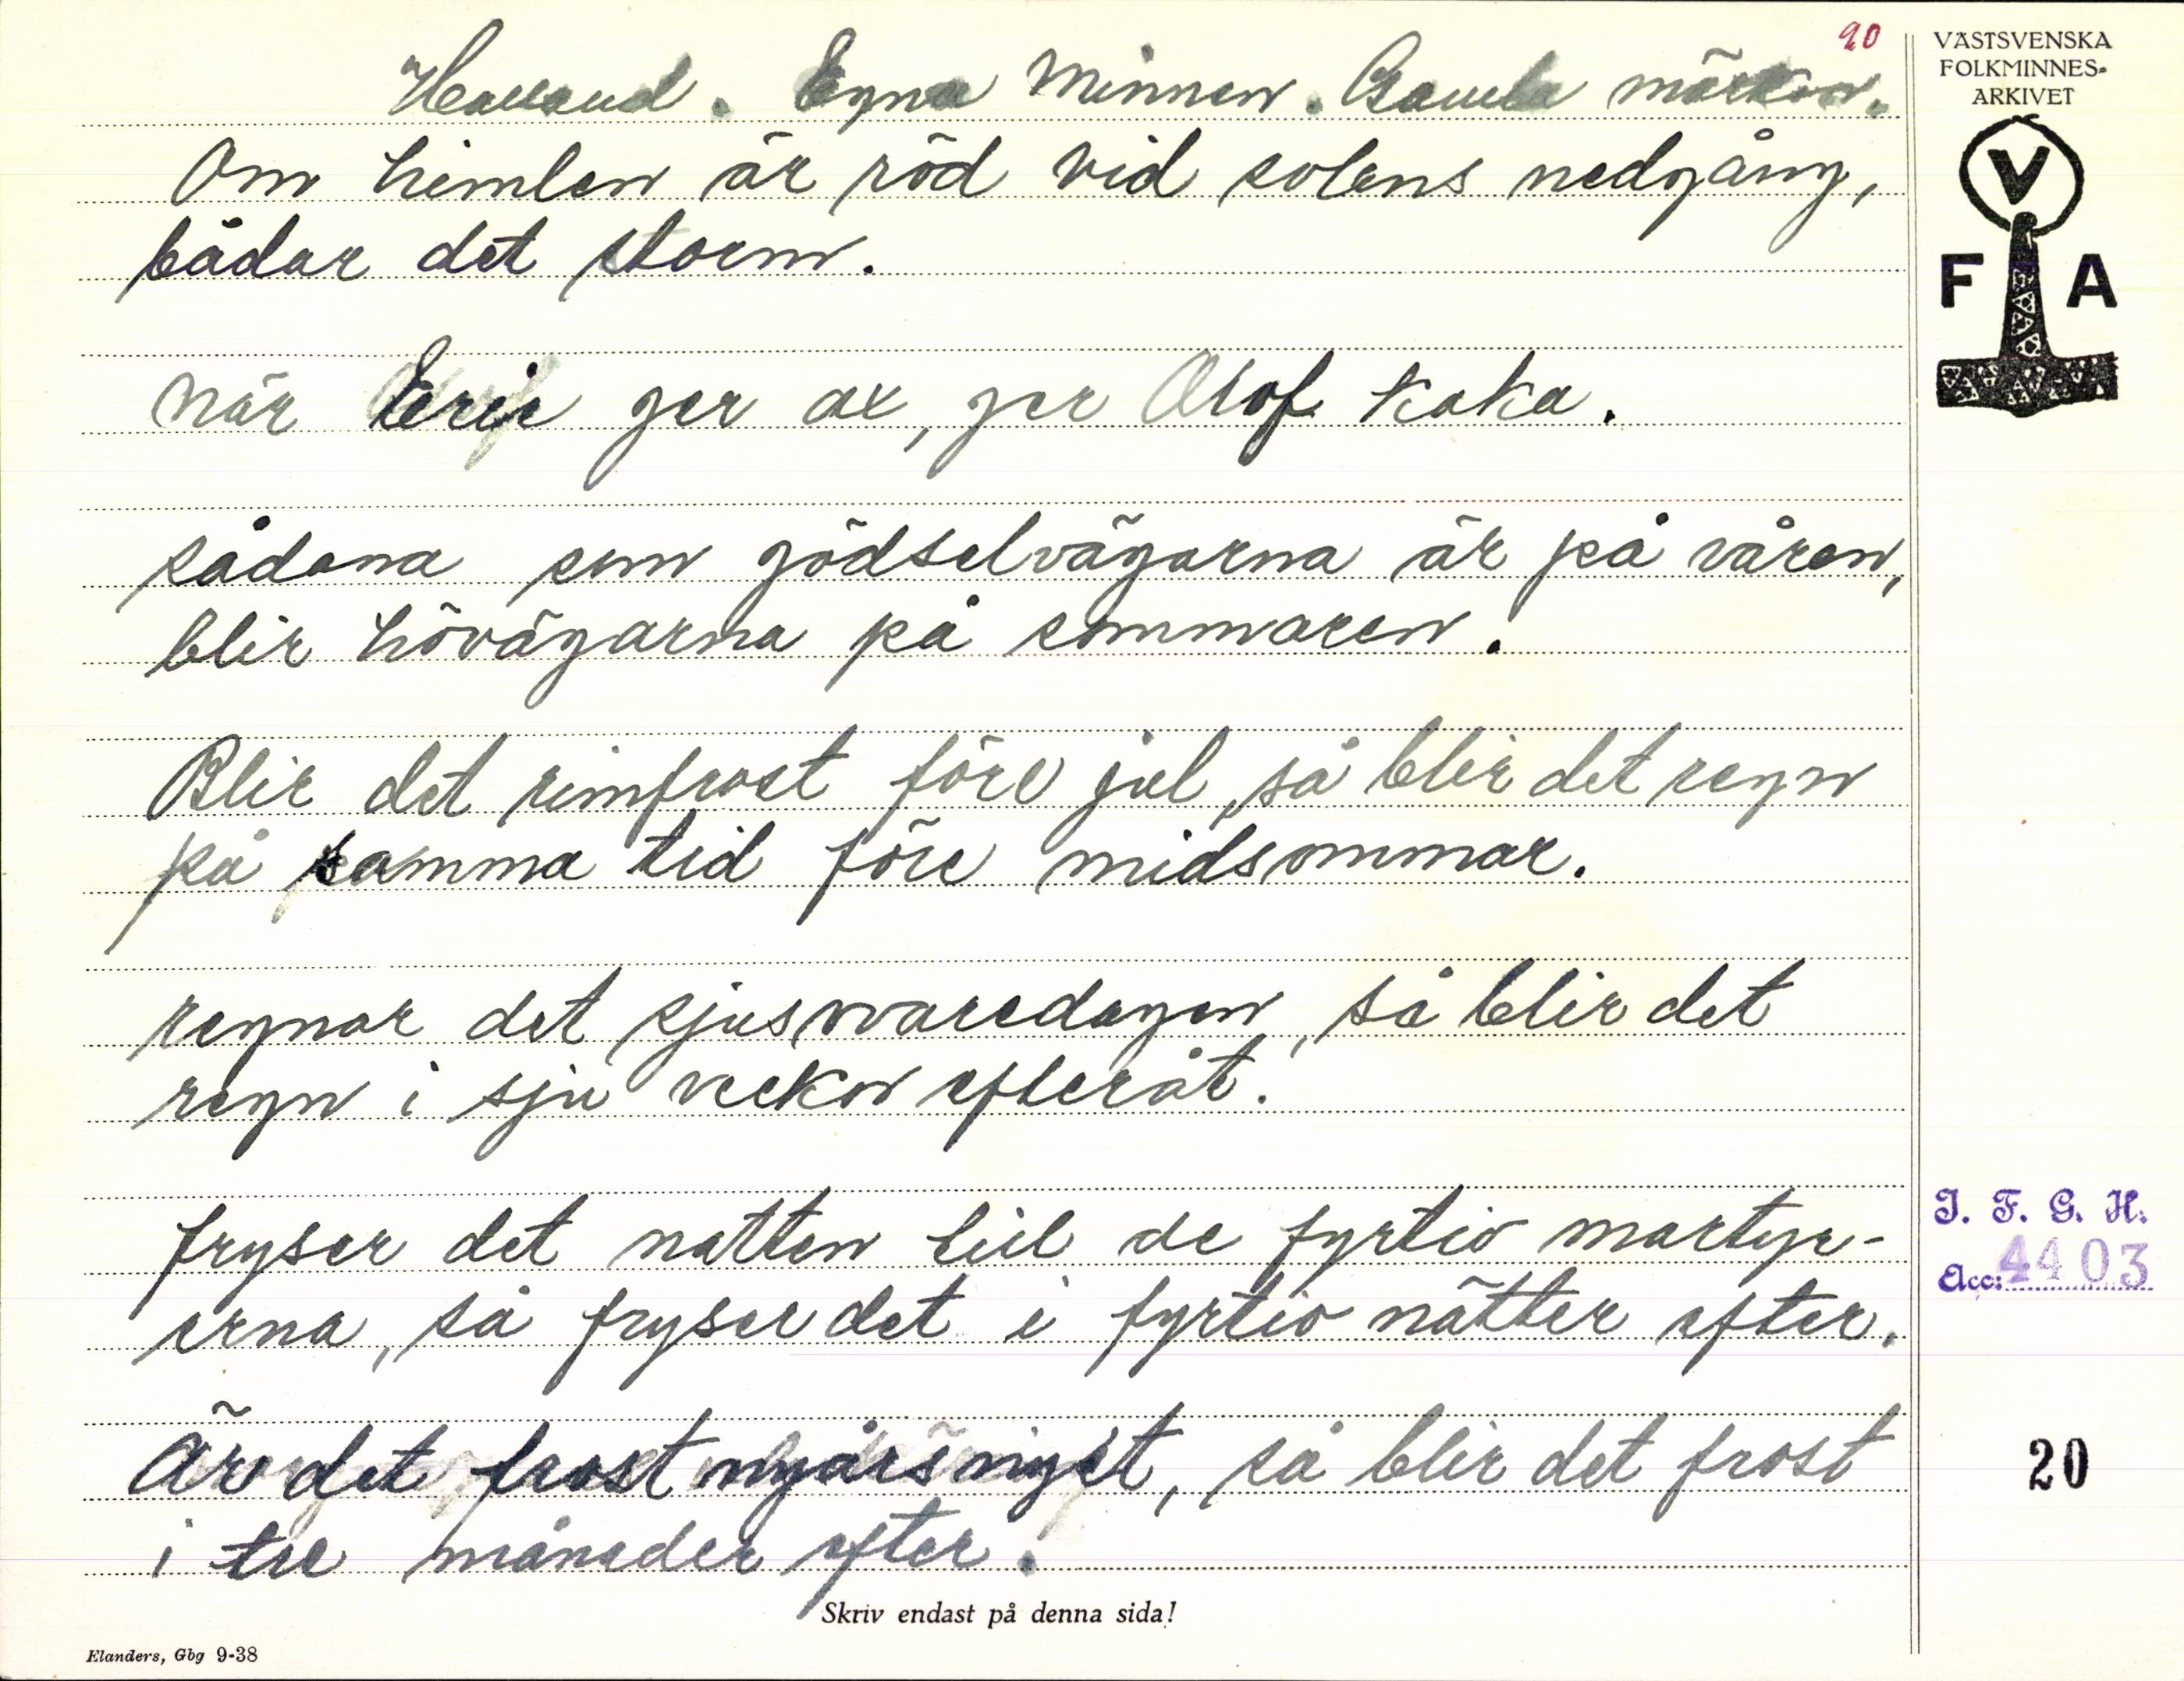 90
Halland. Egna Minnen. Gamla märken.
Om himlen är röd vid solens nedgång,
bådar det storm.
när Eric ger ax, ger Olof kaka.
sådana som gödselvägarna är på våren,
blir hövägarna på sommaren.
Blir det rimfrost före jul, så blir det regn
på samma tid före midsommar.
regnar det sjusovaredagen, så blir det
regn i sju veckor efteråt.
fryser det natten till de fyrtio martyr-
erna, så fryser det i fyrtio nätter efter.
Är det frost nyårsnyet, så blir det frost
i tre månader efter.
Skriv endast på denna sida!
Elanders, Gbg 9-38
VÄSTSVENSKA
FOLKMINNES-
ARKIVET
V
F A
I. F. G. H.
Acc: 4403
20